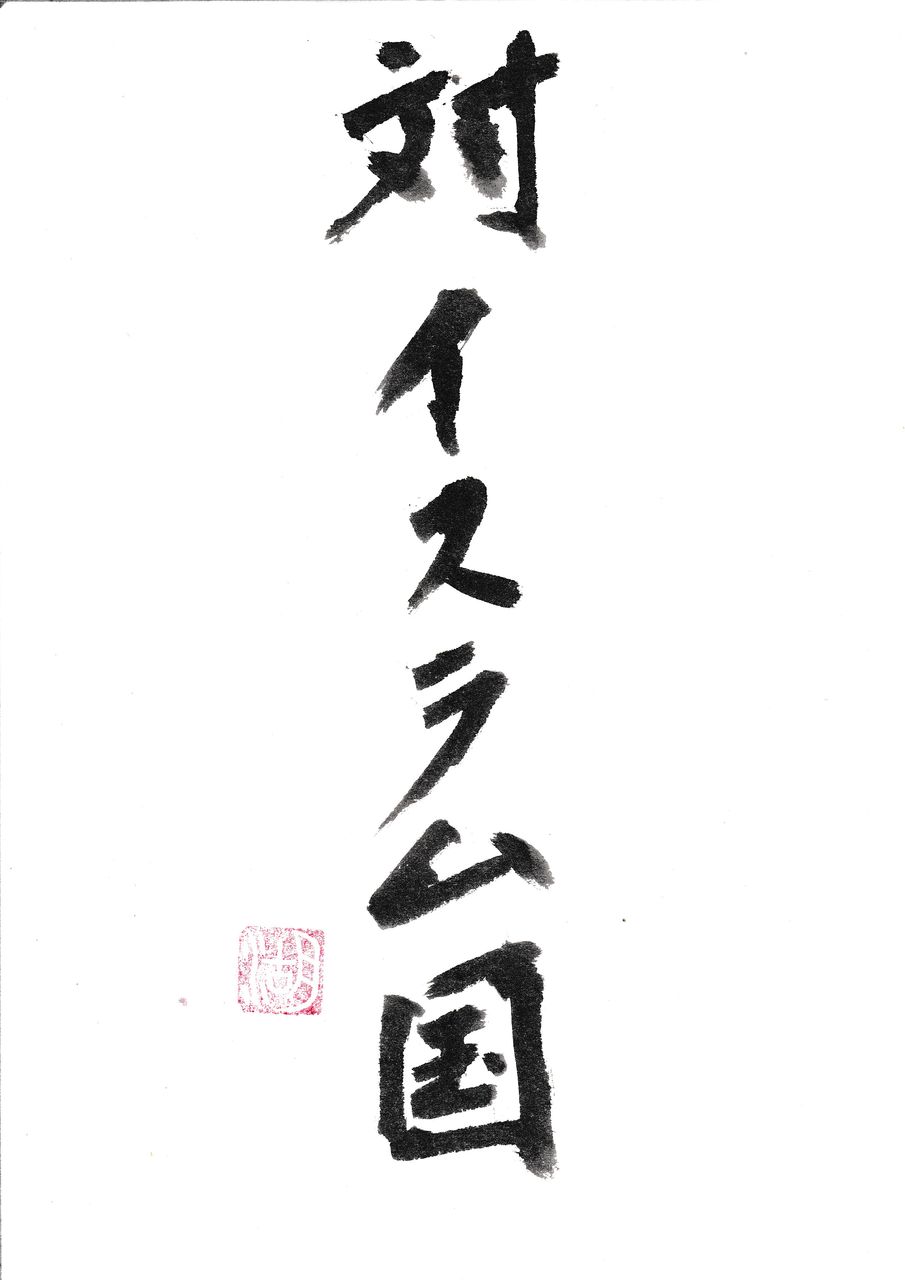 対イスラム国